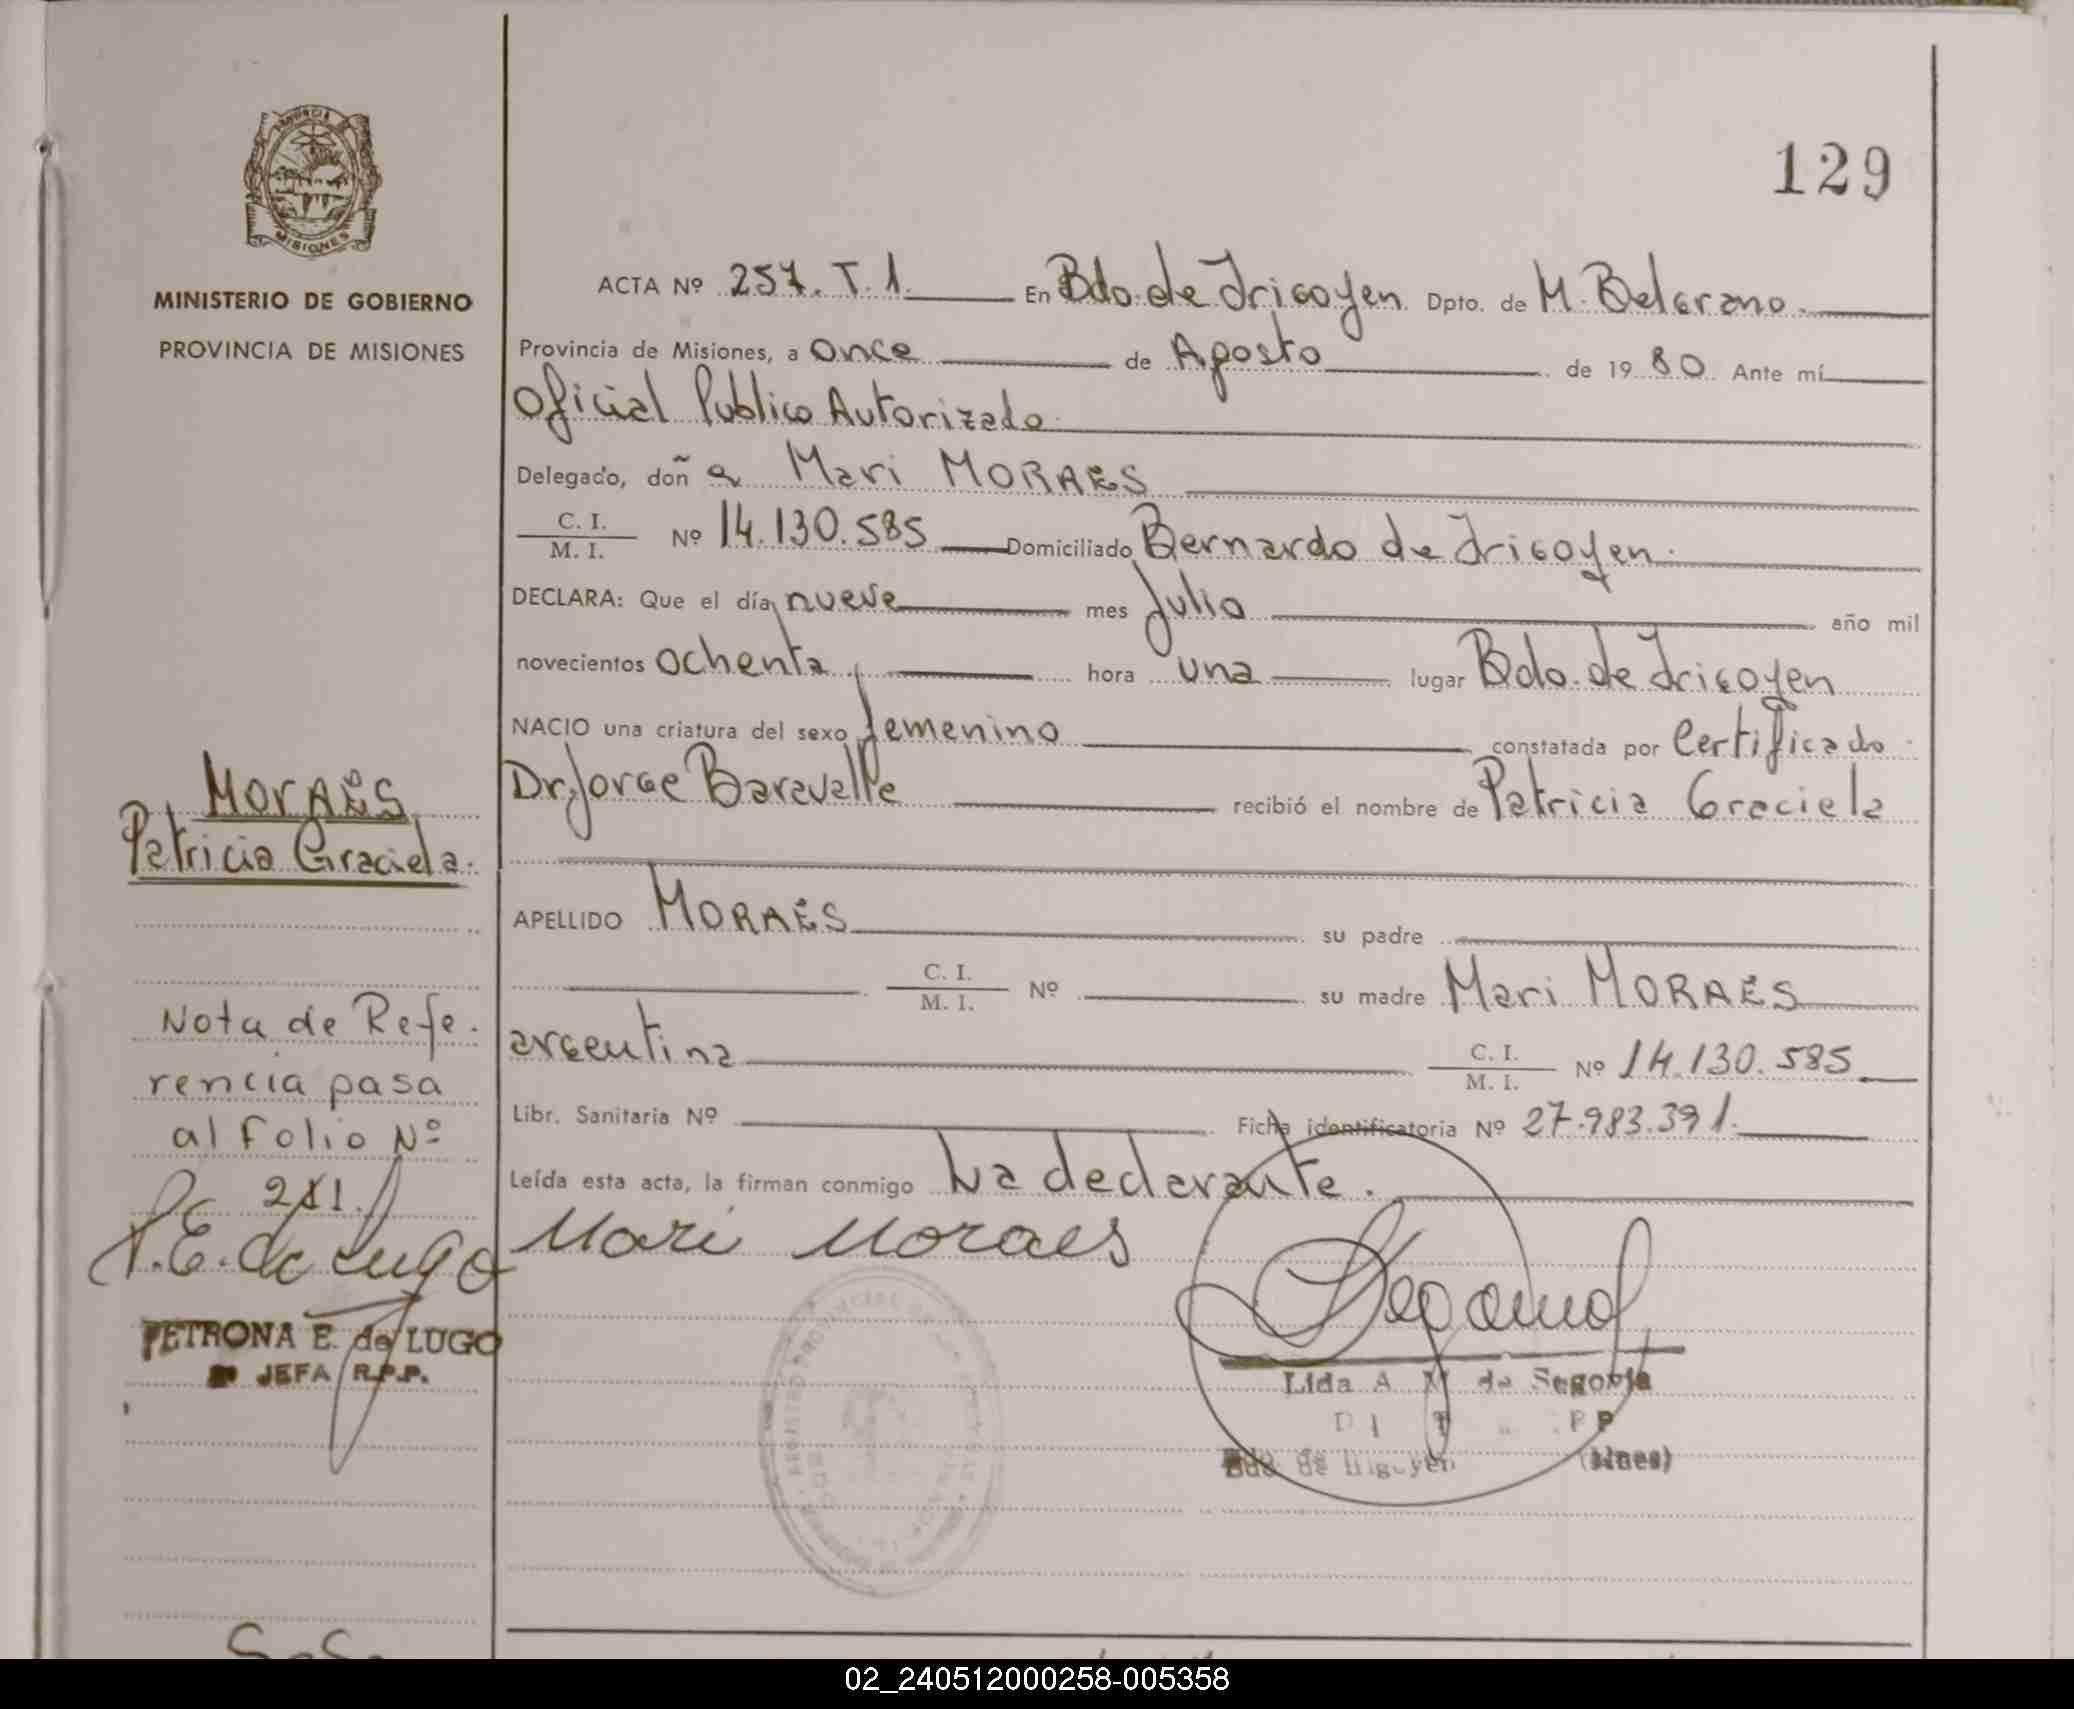 129
PROVINCIA DE
MISIONES
MINISTERIO DE GOBIERNO
PROVINCIA DE MISIONES
ACTA Nº 257. T. 1. En Bdo. de Irigoyen Dpto. de M. Belgrano.
Provincia de Misiones, a once de Agosto de 1980 Ante mí
Oficial Publico Autorizado
Delegado, doña Mari MORAES
C. I.
M. I. Nº 14.130.585 Domiciliado Bernardo de Irigoyen.
DECLARA: Que el día nueve mes Julio año mil
novecientos ochenta, hora una lugar Bdo. de Irigoyen
NACIO una criatura del sexo femenino constatada por Certificado
Dr. Jorge Baravalle recibió el nombre de Patricia Graciela
APELLIDO MORAES su padre
C. I.
M. I. Nº su madre Mari MORAES
argentina C. I.
M. I. Nº 14.130.585
Libr. Sanitaria Nº Ficha identificatoria Nº 27.983.391.
Leída esta acta, la firman conmigo La declarante.
Mari Moraes
Lida A M de Segovia
Bdo de Irigoyen (Mnes)
MORAES
Patricia Graciela.
Nota de Refe.
rencia pasa
al folio Nº
211.
P.E. de Lugo
PETRONA E. de LUGO
JEFA R.P.P.
02_240512000258-005358